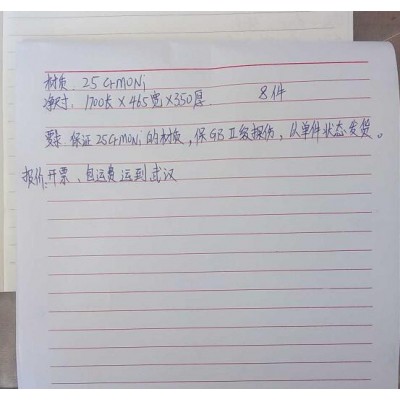 材质: 25CrMONi
净尺寸: 1700长×465宽×350厚. 8件
要求: 保证25CrMONi的材质, 保GBⅡ级探伤, 以单件状态发货。
报价: 开票、包运费运到武汉